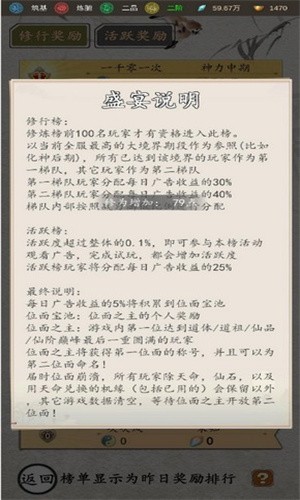 筑基
炼骀
二品
二阶
59.67万
1470
修行奖励
活跃奖励
一千零一次
神力中期
盛宴说明
修行榜:
修炼榜前100名玩家才有资格进入此榜。
以当前全服最高的大境界期段作为参照(比如
化神后期),所有已达到该境界的玩家作为第
一梯队,其它玩家作为第二梯队
第一梯队玩家分配每日广告收益的30%
第二梯队玩家分配每日广告收益的40%
梯队内部按照
分配
修为增加: 79点
活跃榜:
活跃度超过整体的0.1%,即可参与本榜活动
观看广告,完成试玩,都会增加活跃度
活跃榜玩家将分配每日广告收益的25%
最终说明:
每日广告收益的5%将积累到位面宝池
位面宝池:位面之主的个人奖励
位面之主:游戏内第一位达到道体/道祖/仙品
/仙阶巅峰最后一重圆满的玩家
位面之主将获得第一位面的称号,并且可以为
第二位面命名!
届时位面崩溃,所有玩家除天命,仙石,以及
用天命兑换的机缘(包括已用的)会保留以外
,其它游戏数据清空,等待位面之主开放第二
位面!
0
0
0
返回
榜单显示为昨日奖励排行